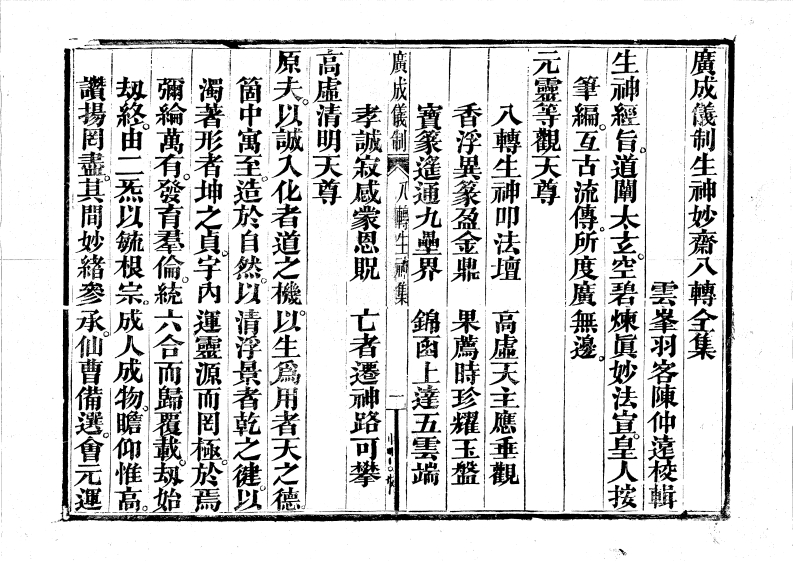 廣成儀制生神妙齋八轉全集
雲峯羽客陳仲遠校輯
生神經旨。道闡太玄。空碧煉眞妙法宣。皇人按
筆編。互古流傳。所度廣無邊。
元靈等觀天尊
八轉生神叩法壇　高虛天主應垂觀
香浮異篆盈金鼎　果薦時珍耀玉盤
寳篆遙通九壘界　錦函上達五雲端
孝誠寂感蒙恩貺　亡者遷神路可攀
廣成儀制　八轉生神集　一
高虛清明天尊
原夫。以誠入化者道之機。以生爲用者天之德。
箇中寓至。造於自然。以清浮景者乾之健。以
濁著形者坤之貞。宇內運靈源而罔極。於焉
彌綸萬有。發育羣倫。統六合而歸覆載。刼始
刼終。由二炁以毓根宗。成人成物。瞻仰惟高。
讚揚罔盡。其間妙緒參承。仙曹備選。會元運